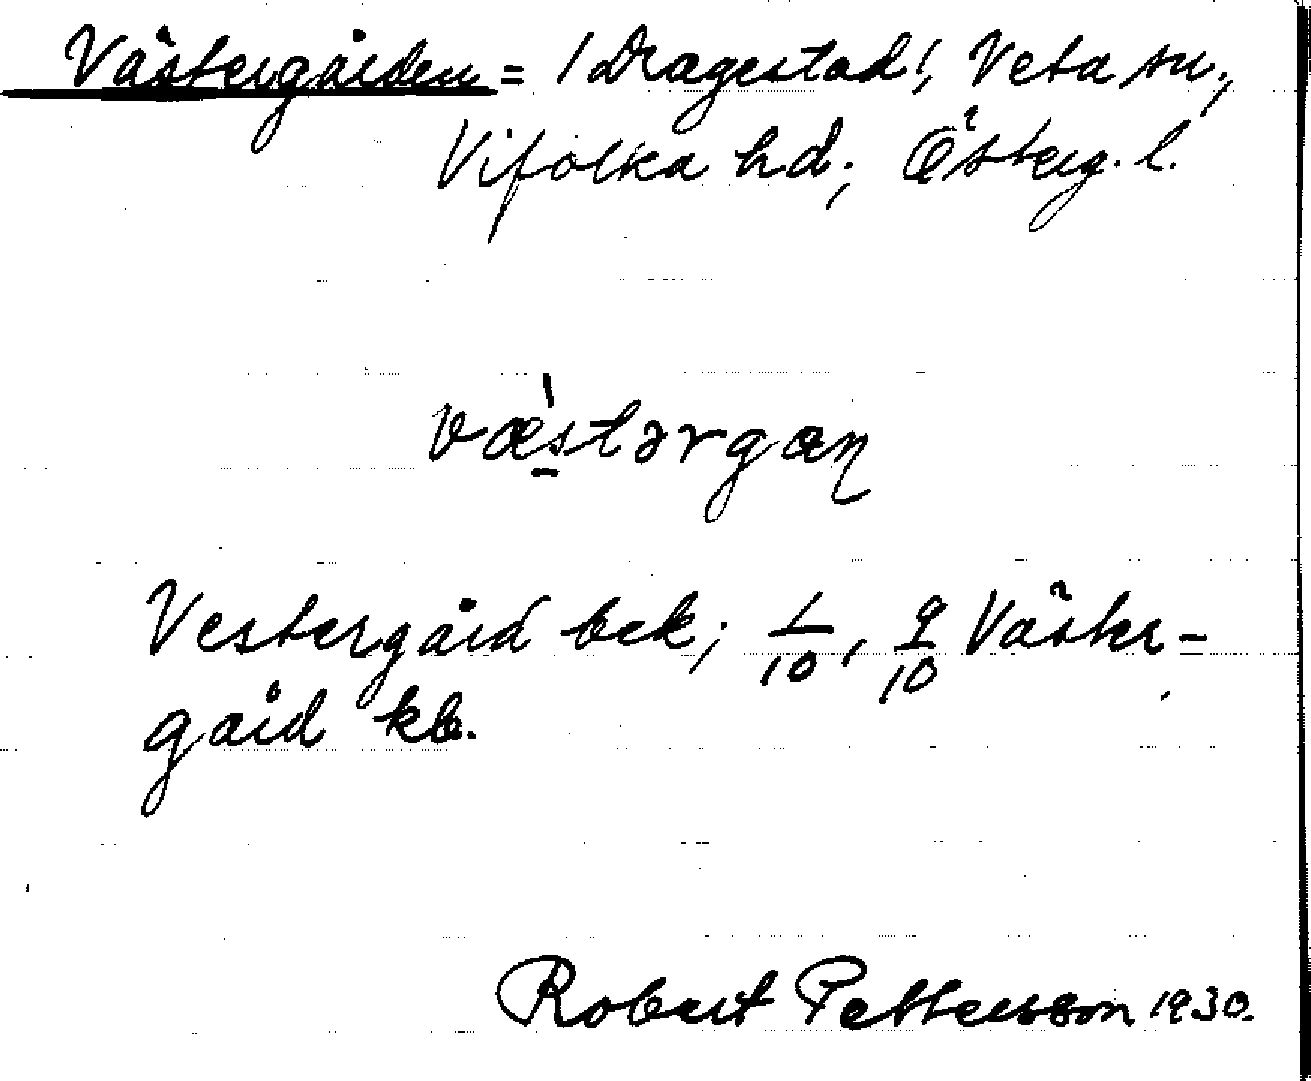 Västergården = /Dragestad/, Veta sn.,
Vifolka hd., Österg. l.
væ̀stərgan
Vestergård bek; 1/10, 9/10 Väster-
gård kb.
Robert Pettersson 1930.